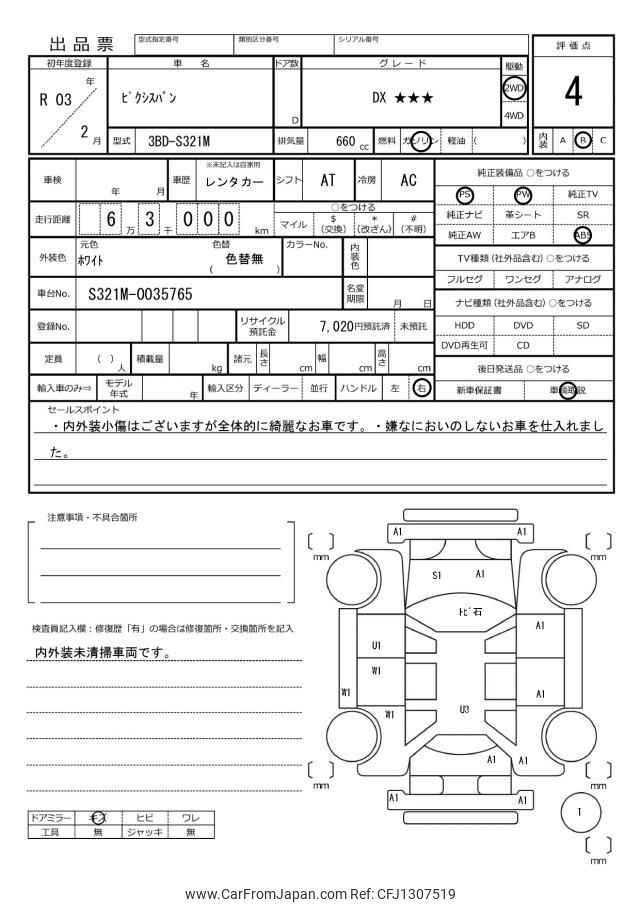 出品票
型式指定番号 類別区分番号 シリアル番号
評価点
初年度登録 車名 ドア数 グレード 駆動
R 03 年 2 月
ピクシスバン
D
DX ★★★
2WD
4WD
4
型式 3BD-S321M 排気量 660 cc 燃料 ガソリン 軽油 ( )
内装 A B C
車検 年 月 車歴 ※未記入は自家用 レンタカー シフト AT 冷房 AC
走行距離 6 3 0 0 0 万 千 km
○をつける
マイル $(交換) *(改ざん) #(不明)
外装色 元色 ホワイト 色替 ( 色替無 ) カラーNo. 内装色
車台No. S321M-0035765 名変期限 月 日
登録No. リサイクル預託金 7,020円預託済 未預託
定員 ( )人 積載量 kg 諸元 長さ cm 幅 cm 高さ cm
輸入車のみ⇒ モデル年式 年 輸入区分 ディーラー 並行 ハンドル 左 右
純正装備品 ○をつける
PS PW 純正TV
純正ナビ 革シート SR
純正AW エアB ABS
TV種類 (社外品含む) ○をつける
フルセグ ワンセグ アナログ
ナビ種類 (社外品含む) ○をつける
HDD DVD SD
DVD再生可 CD
後日発送品 ○をつける
新車保証書 車輌取説
セールスポイント
・内外装小傷はございますが全体的に綺麗なお車です。・嫌なにおいのしないお車を仕入れまし
た。
注意事項・不具合箇所
検査員記入欄：修復歴「有」の場合は修復箇所・交換箇所を記入
内外装未清掃車両です。
ドアミラー キズ ヒビ ワレ
工具 無 ジャッキ 無
A1 A1
mm mm
S1 A1
トビ石
A1
U1
W1
W1 A1
W1 U3
A1 A1
mm mm
A1 A1
T
mm
www.CarFromJapan.com Ref: CFJ1307519